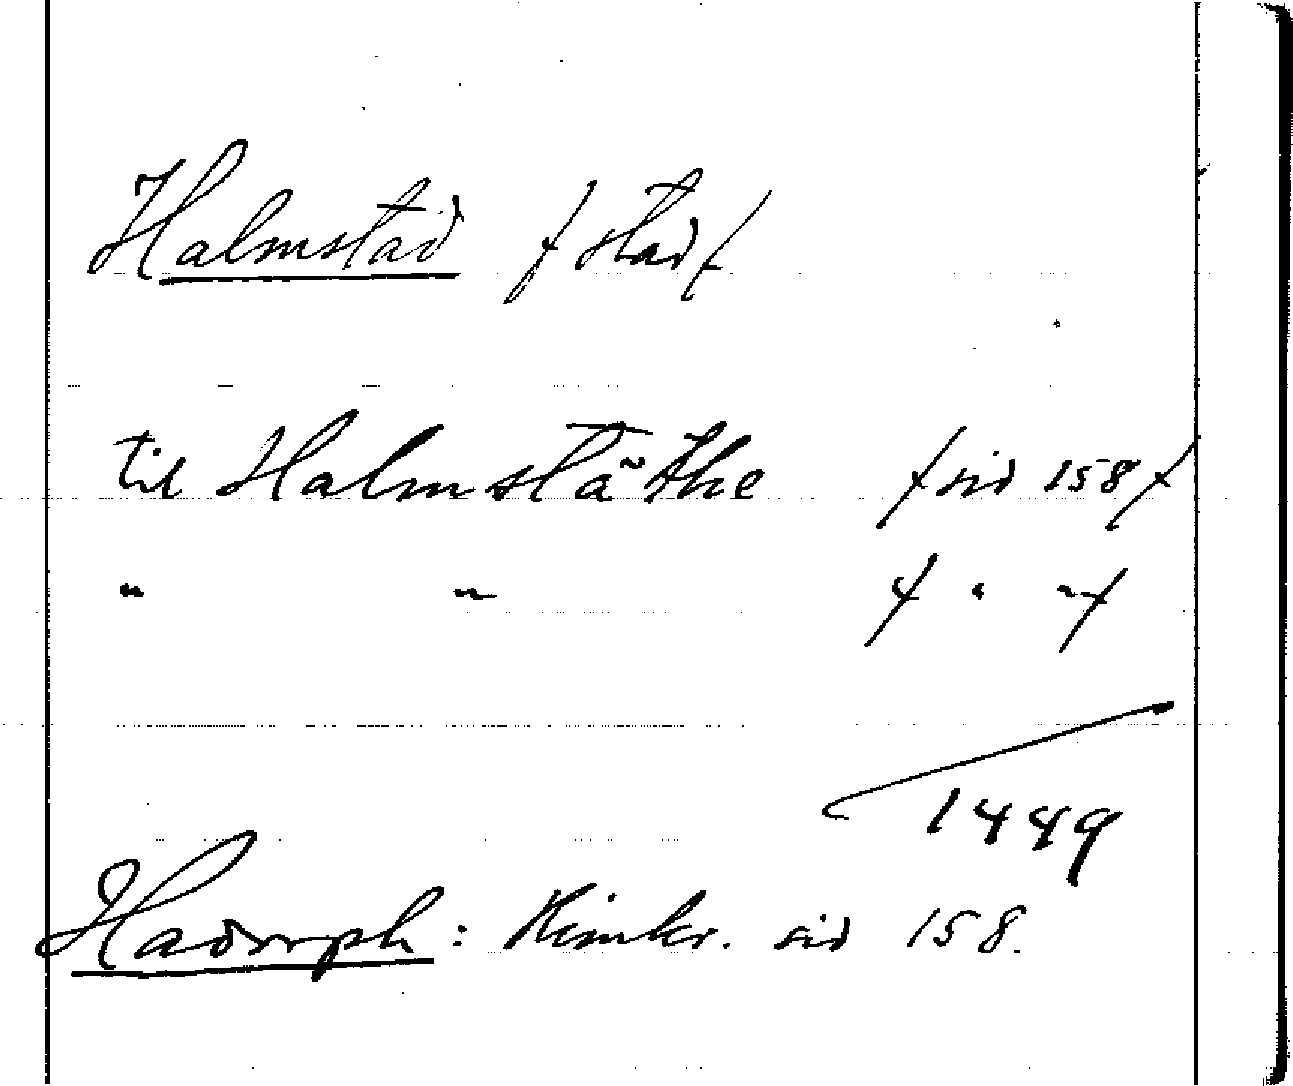 Halmstad / stad /
til Halmstãthe / sid 158 /
" " / " " /
1449
Hadorph: Rimkr. sid 158.